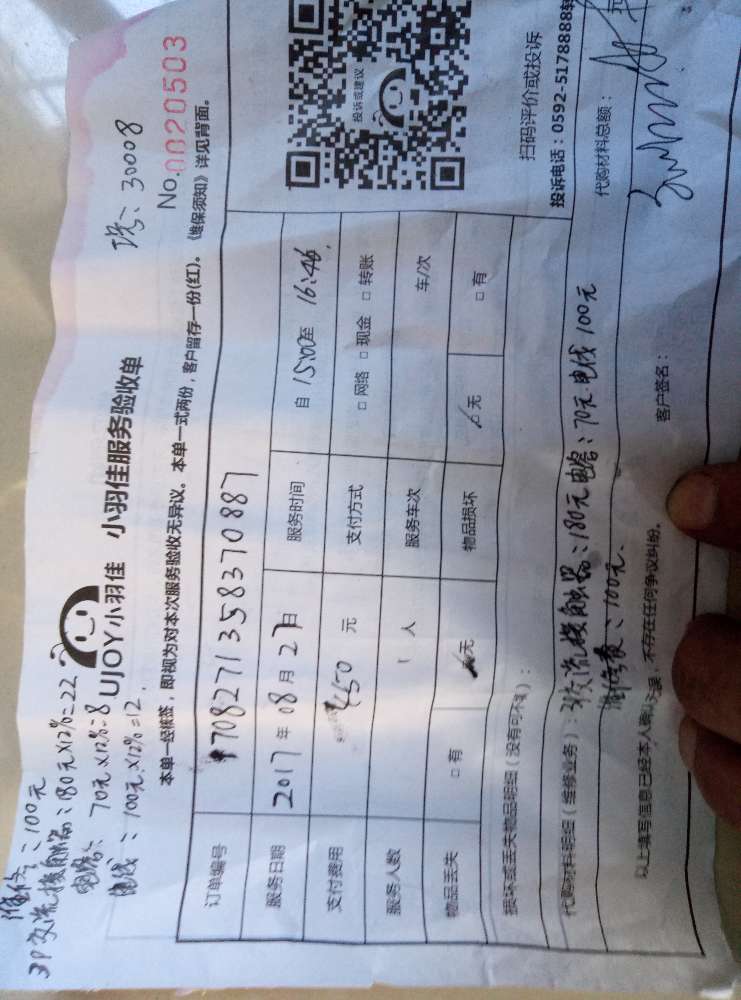 维修:100元
3P交流接触器:180元×12%=22
电容:70元×12%=8
电线:100元×12%=12.
工号:30008
UJOY小羽佳 小羽佳服务验收单
No.0020503
本单一经维签,即视为对本次服务验收无异议。本单一式两份,客户留存一份(红)。《维保须知》详见背面。
订单编号 1708271358370887
服务日期 2017年08月27日 服务时间 自15:00至16:46
支付费用 450元 支付方式 □网络 □现金 □转账
服务人数 1人 服务车次 车/次
物品丢失 □有 □无 物品损坏 □无 □有
投诉或建议
扫码评价或投诉
投诉电话:0592-5178888转
损坏或丢失物品明细(没有可不填):
代购材料明细(维修业务):3P交流接触器:180元电容:70元电线100元
维修费:100元.
代购材料总额: 元
以上填写信息已经本人确认无误,不存在任何争议纠纷。 客户签名: